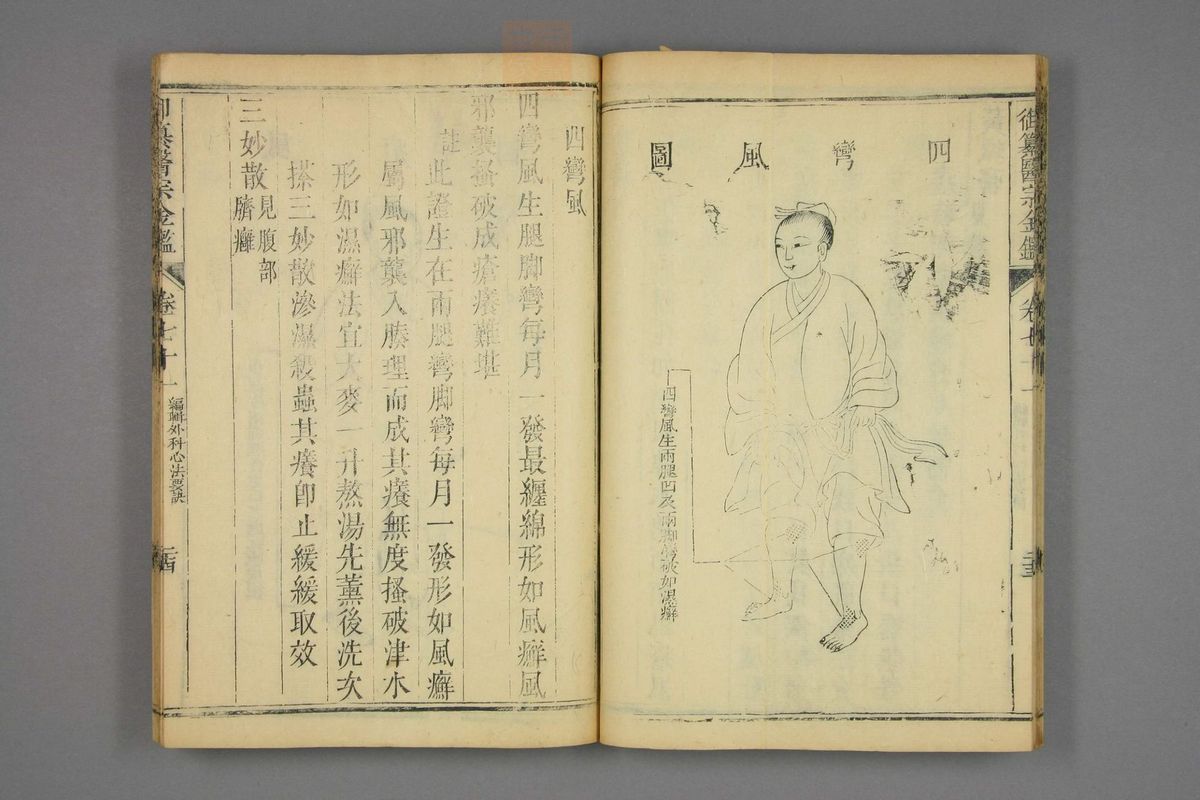 御纂醫宗金鑑
卷七十一
四彎風圖
四彎風生兩腿凹及兩脚彎破如濕癬
四彎風
四彎風生腿脚彎每月一發最纏綿形如風癬風
邪襲搔破成瘡癢難堪
註此證生在兩腿彎脚彎每月一發形如風癬
屬風邪襲入腠理而成其癢無度搔破津水
形如濕癬法宜大麥一升熬湯先薰後洗次
搽三妙散滲濕殺蟲其癢即止緩緩取效
三妙散見腹部
臍癰
御纂醫宗金鑑
卷七十一
編輯外科心法要訣